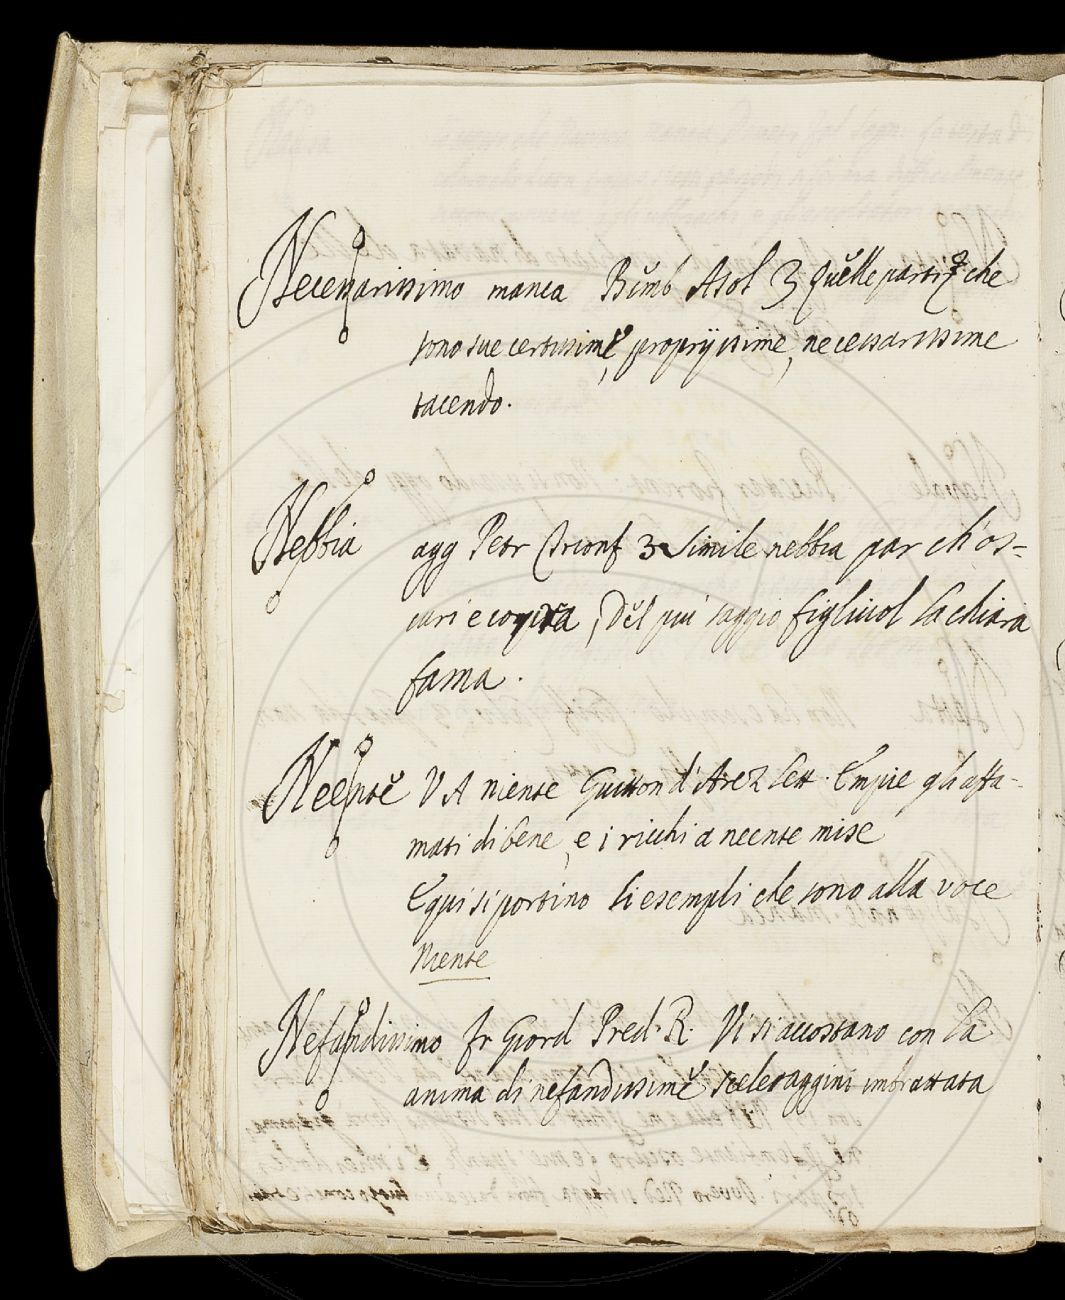 Necessarissimo manca Bemb Asol 3 Quelle parti che
sono sue certissime, propriissime, necessarissime
tacendo.
Nebbia agg Petr Trionf 3 Simile nebbia par ch'os-
curi e copra, Del piu saggio figliuol la chiara
fama.
Neente V A niente Guitton d'Arez lett. Empie gli affa-
mati di bene, e i ricchi a neente mise
E qui si portino li esempli che sono alla voce
Niente
Nefandissimo fr Giord Pred. R. Vi si accostano con la
anima di nefandissime sceleraggini imbrattata